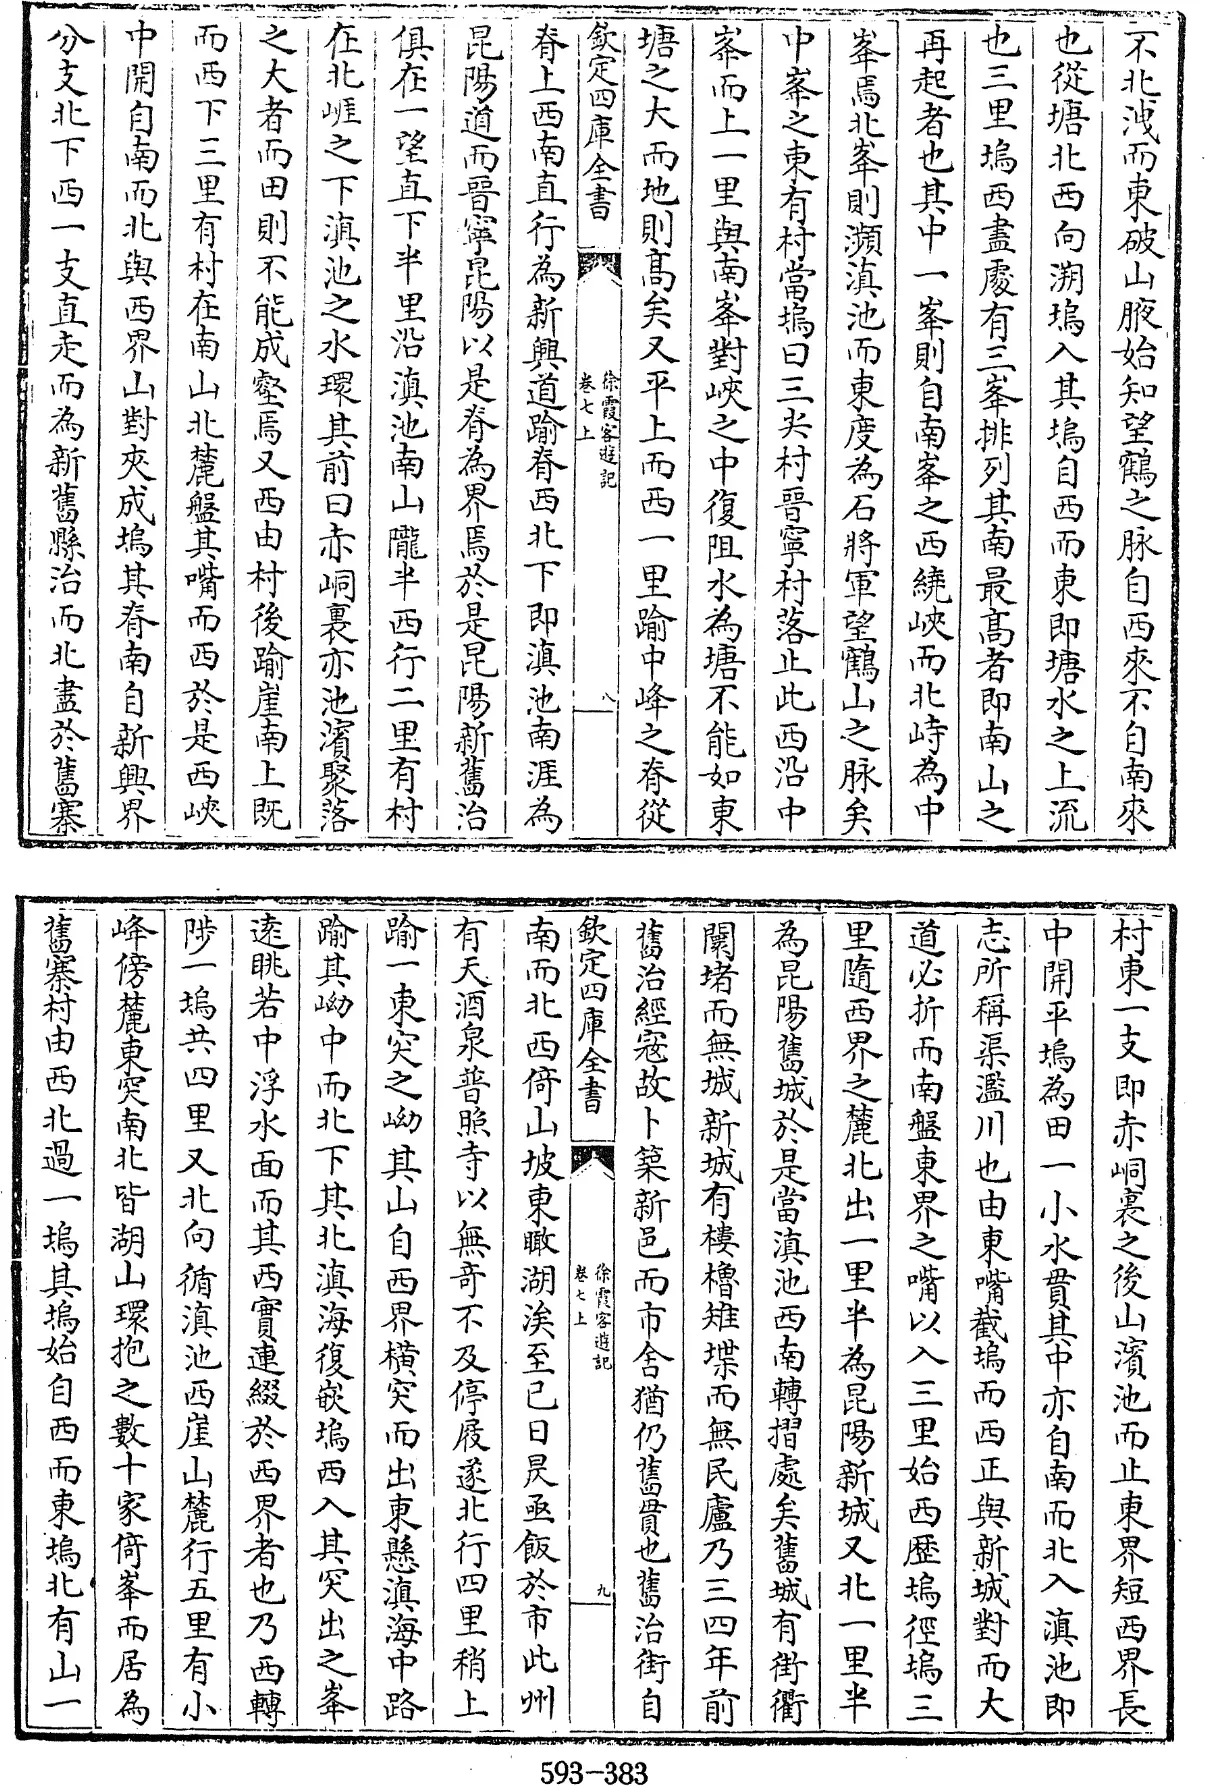 不北洩而東破山腋始知望鶴之脉自西來不自南來
也從塘北西向溯塢入其塢自西而東即塘水之上流
也三里塢西盡處有三峯排列其南最高者即南山之
再起者也其中一峯則自南峯之西繞峽而北峙為中
峯焉北峯則瀕滇池而東度為石將軍望鶴山之脉矣
中峯之東有村當塢曰三尖村晉寧村落止此西沿中
峯而上一里與南峯對峽之中復阻水為塘不能如東
塘之大而地則髙矣又平上而西一里踰中峰之脊從
欽定四庫全書
徐霞客遊記
卷七上
八
脊上西南直行為新興道踰脊西北下即滇池南涯為
昆陽道而晉寧昆陽以是脊為界焉於是昆陽新舊治
俱在一望直下半里沿滇池南山隴半西行二里有村
在北崕之下滇池之水環其前曰赤峒裏亦池濱聚落
之大者而田則不能成壑焉又西由村後踰崖南上既
而西下三里有村在南山北麓盤其嘴而西於是西峽
中開自南而北與西界山對夾成塢其脊南自新興界
分支北下西一支直走而為新舊縣治而北盡於舊寨
村東一支即赤峒裏之後山濱池而止東界短西界長
中開平塢為田一小水貫其中亦自南而北入滇池即
志所稱渠濫川也由東嘴截塢而西正與新城對而大
道必折而南盤東界之嘴以入三里始西歷塢徑塢三
里隨西界之麓北出一里半為昆陽新城又北一里半
為昆陽舊城於是當滇池西南轉摺處矣舊城有街衢
闤堵而無城新城有樓櫓雉堞而無民廬乃三四年前
舊治經寇故卜築新邑而市舍猶仍舊貫也舊治街自
欽定四庫全書
徐霞客遊記
卷七上
九
南而北西倚山坡東瞰湖涘至已日昃亟飯於市此州
有天酒泉普照寺以無奇不及停屐遂北行四里稍上
踰一東突之坳其山自西界横突而出東懸滇海中路
踰其坳中而北下其北滇海復嵌塢西入其突出之峯
遠眺若中浮水面而其西實連綴於西界者也乃西轉
陟一塢共四里又北向循滇池西崖山麓行五里有小
峰傍麓東突南北皆湖山環抱之數十家倚峯而居為
舊寨村由西北過一塢其塢始自西而東塢北有山一
593-383